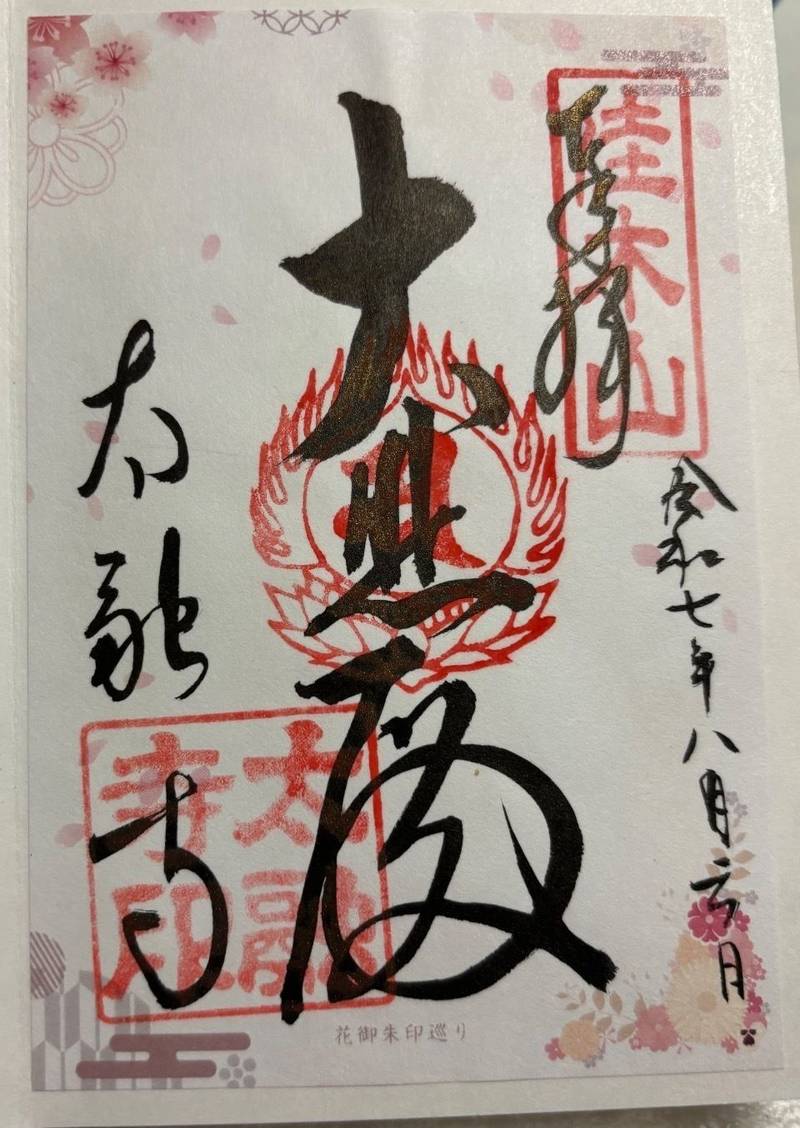 佳木山
奉拝
令和七年八月六日
大悲殿
太融寺
太融寺印
花御朱印巡り